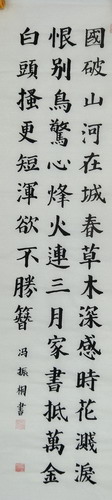 國破山河在城春草木深感時花濺淚
恨别鳥驚心烽火連三月家書抵萬金
白頭搔更短渾欲不勝簪
冯振桐書